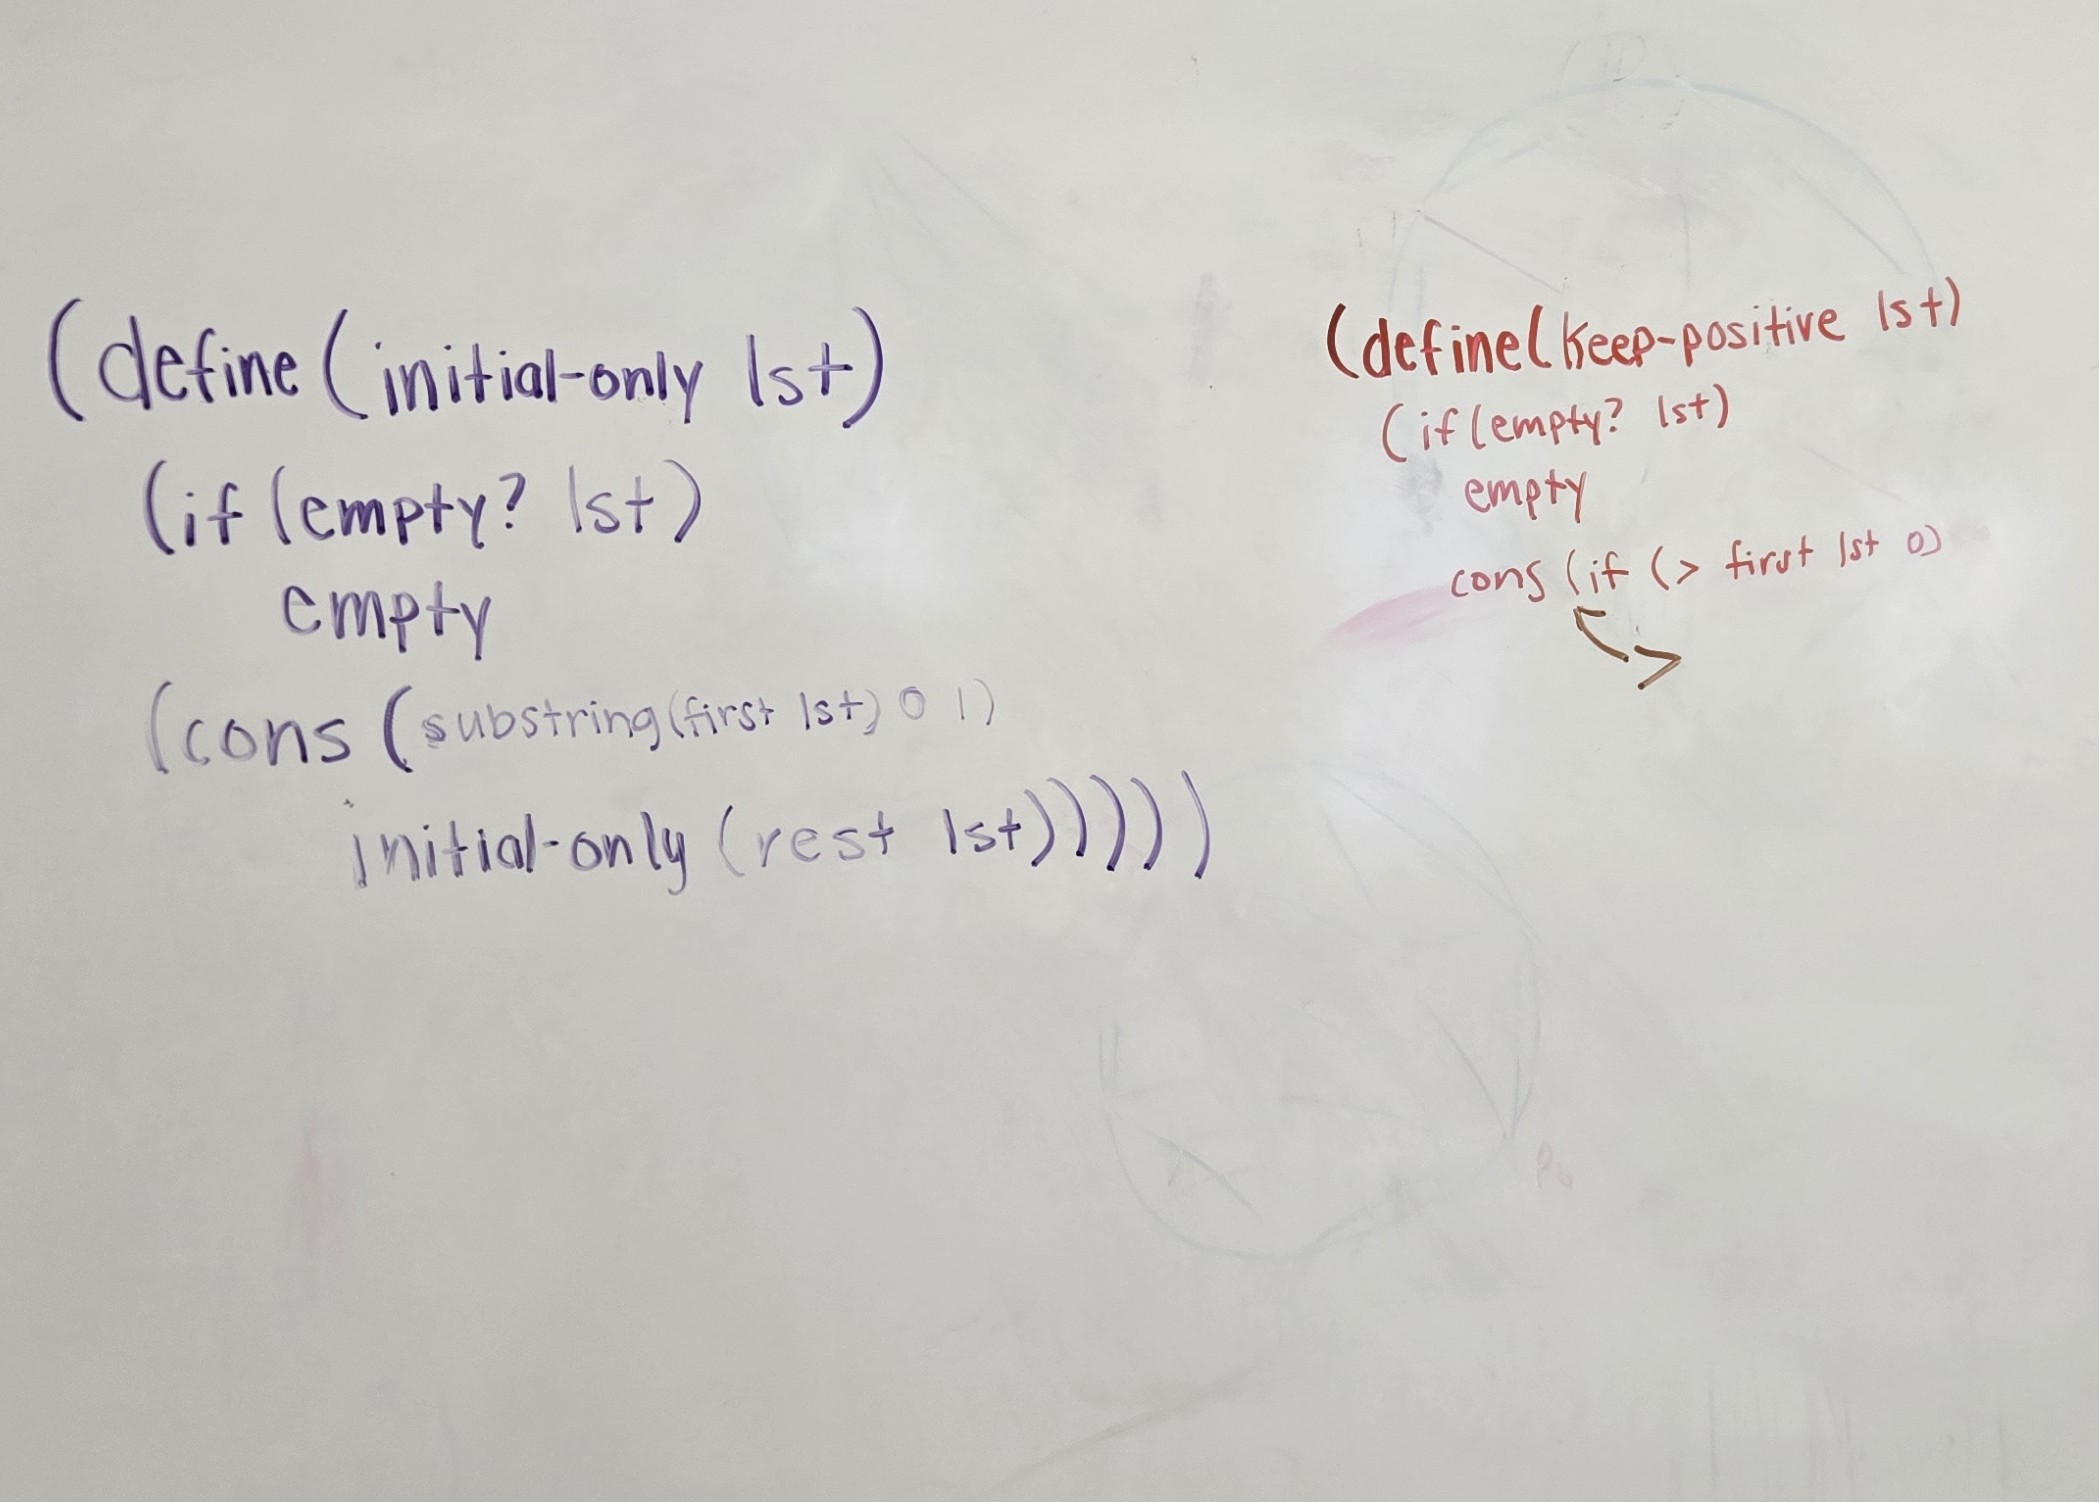 (define (initial-only lst)
(if (empty? lst)
empty
(cons (substring (first lst) 0 1)
initial-only (rest lst)))))
(define (keep-positive lst)
(if (empty? lst)
empty
cons (if (> first lst 0)